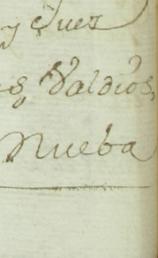 y Juez
es, Valdios,
Nueba